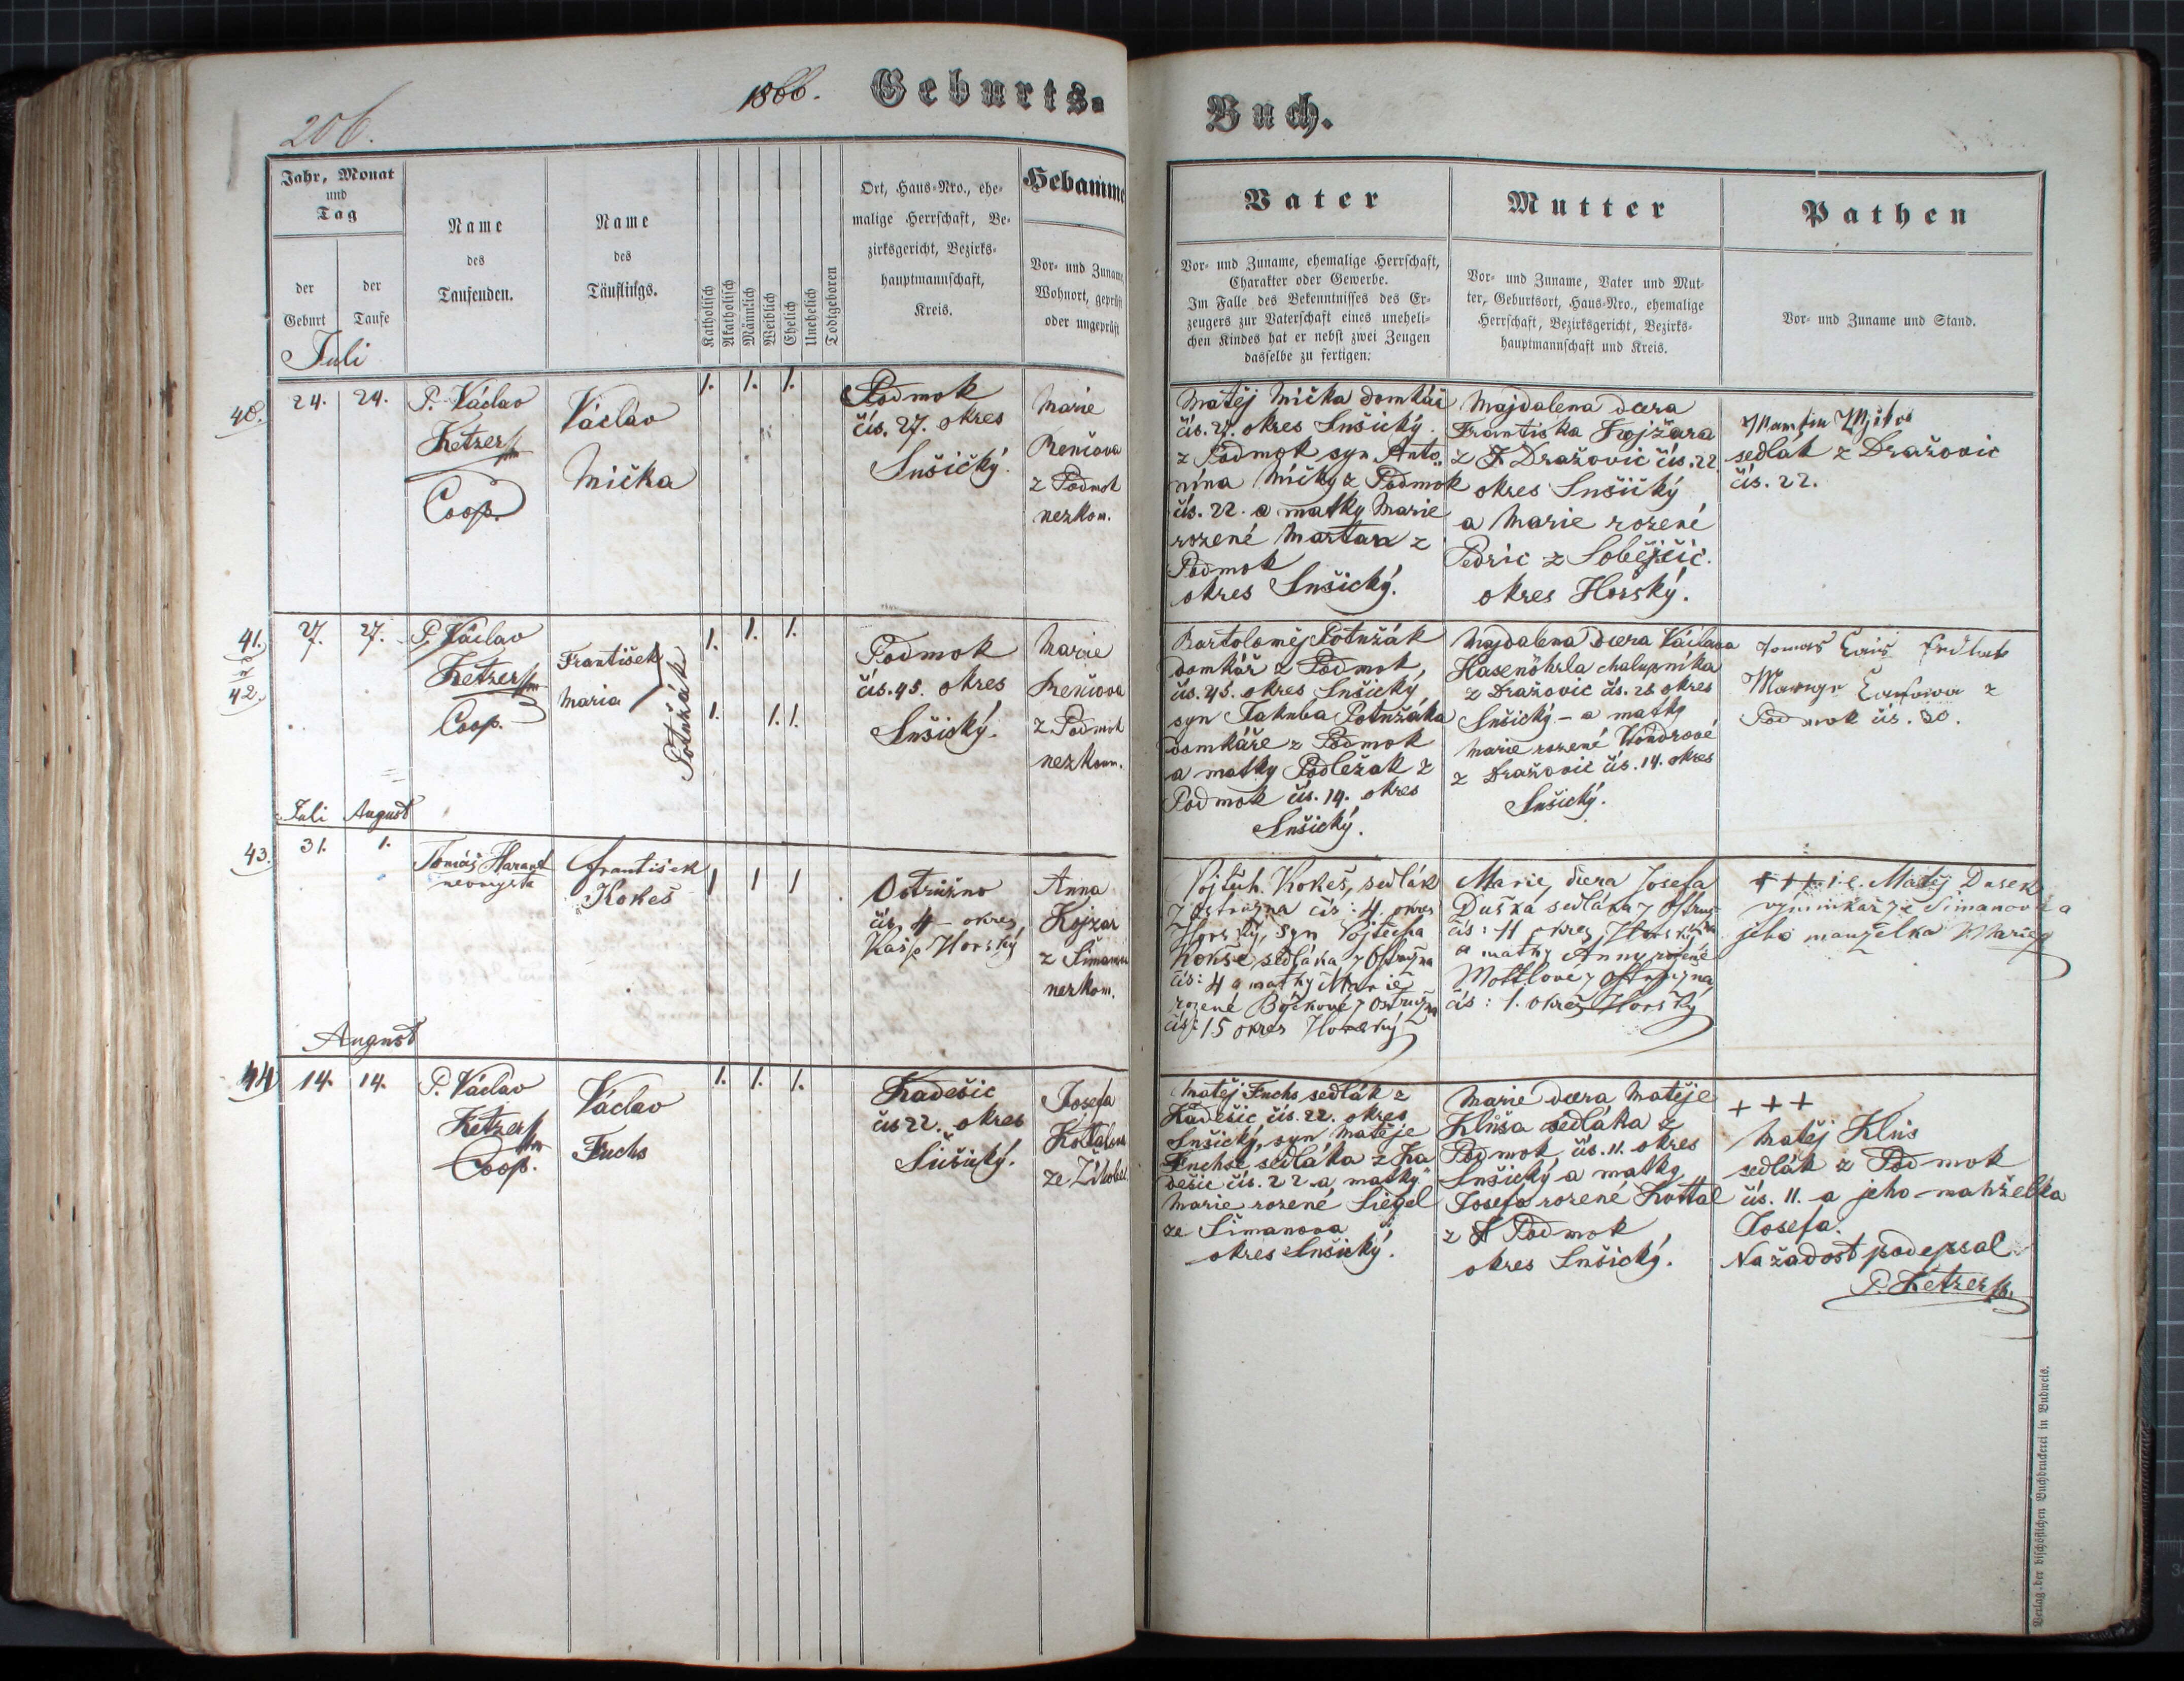 206.
1866. Geburts-
Jahr, Monat
und
Tag
der
Geburt
der
Taufe
Name
des
Taufenden.
Name
des
Täuflings.
Katholisch
Akatholisch
Männlich
Weiblich
Ehelich
Unehelich
Todtgeboren
Ort, Haus-Nro., ehe-
malige Herrschaft, Be-
zirksgericht, Bezirks-
hauptmannschaft,
Kreis.
Hebamme
Vor- und Zuname,
Wohnort, geprüft
oder ungeprüft
Juli
40.
24. 24.
P. Václav
Ketzer
Coop.
Václav
Mička
1. 1. 1.
Podmok
čís. 27. okres
Sušický.
Marie
Renčova
z Podmok
nezkom.
41.
42.
27. 27.
P. Václav
Ketzer
Coop.
František
Maria
Potužák
1. 1. 1.
1. 1. 1.
Podmok
čís. 45. okres
Sušický.
Marie
Renčova
z Podmok
nezkom.
Juli August
43.
31. 1.
Tomáš Harant
František
Kokeš
1 1 1
Ostružno
čís. 4 – okres
Kašp. Horský
Anna
Kojzar
z Šimanov
nezkom.
August
44
14. 14.
P. Václav
Ketzer
Coop.
Václav
Fuchs
1. 1. 1.
Kadešic
čís 22. okres
Sušický.
Josefa
ze Žihobec
Buch.
Vater
Vor- und Zuname, ehemalige Herrschaft,
Charakter oder Gewerbe.
Im Falle des Bekenntnisses des Er-
zeugers zur Vaterschaft eines uneheli-
chen Kindes hat er nebst zwei Zeugen
dasselbe zu fertigen:
Mutter
Vor- und Zuname, Vater und Mut-
ter, Geburtsort, Haus-Nro., ehemalige
Herrschaft, Bezirksgericht, Bezirks-
hauptmannschaft und Kreis.
Pathen
Vor- und Zuname und Stand.
Matěj Mička domkář
čís. 27. okres Sušický.
z Podmok syn Anto-
nína Mičky z Podmok
čís. 22. a matky Marie
rozené Martan z
Podmok
okres Sušický.
Majdalena dcera
Františka Kojzara
z Dražovic čís. 22.
okres Sušický
a Marie rozené
Pedric z Soběšic.
okres Horský.
Martin
sedlák z Dražovic
čís. 22.
Bartoloměj Potužák
domkář z Podmok,
čís. 45. okres Sušický
syn Jakuba Potužáka
domkáře z Podmok
a matky Podležak z
Podmok čís. 14. okres
Sušický.
Majdalena dcera Václava
Hasenöhrla chalupníka
z Dražovic čís. 28. okres
Sušický – a matky
Marie rozené Wondrové
z Dražovic čís. 14. okres
Sušický.
Tomas
z
Podmok čís. 30.
Vojtěch. Kokeš, sedlák
z Ostružna čís: 4. okres
Horský, syn Vojtěcha
Kokše sedláka z Ostružna
čís: 4 a matky Marie
rozené Bočkové z Ostružna
čís: 15 okres Horský
Marie, dcera Josefa
Duška sedláka z Ostruž
čís: 11 okres Horský
a matky Anny rozené
Mottlove z Ostružna
čís: 1. okres Horský
+++ i.e. Matěj Dusek
výminkář ze Simanova a
jeho manželka Marie
Matěj Fuchs, sedlák z
Kadešic čís. 22. okres
Sušický, syn Matěje
Fuchse sedláka z Ka-
dešic čís. 22 a matky
Marie rozené Siegel
ze Šimanova
okres Sušický.
Marie dcera Matěje
Klůsa sedláka z
Podmok, čís. 11. okres
Sušický a matky
Josefa rozené Kottal
z Podmok
okres Sušický.
+++
Matěj Klus
sedlák z Podmok
čís. 11. a jeho manželka
Josefa.
Na žadost podepsal
P. Ketzer
Verlag der bischöflichen Buchdruckerei in Budweis.